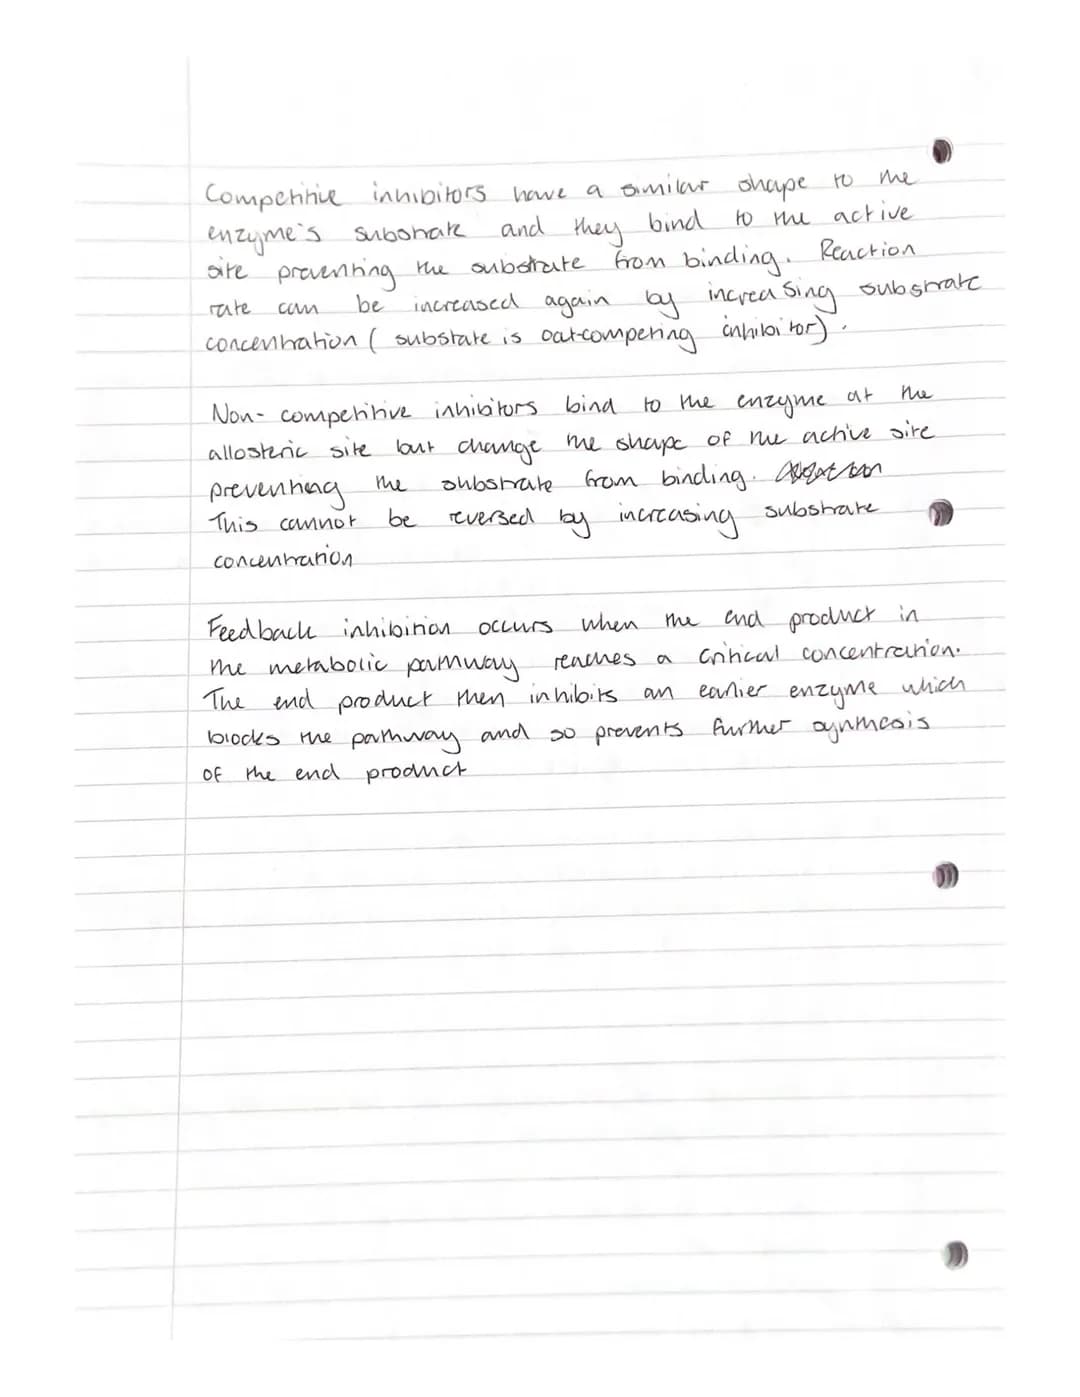 Competitive inhibitors have a similar shape to the
enzyme's substrate and they bind to the active
site preventing the substrate from binding. Reaction
rate can be increased again by increasing substrate
concentration ( substate is out-competing inhibitor).
Non- competitive inhibitors bind to the enzyme at the
allosteric site but change the shape of the active site
preventing the substrate from binding.
This cannot be reversed by increasing substrate
concentration
Feedback inhibition occurs when the end product in
the metabolic pathway reaches a critical concentration.
The end product then inhibits an earlier enzyme which
blocks the pathway and so prevents further synthesis
of the end product